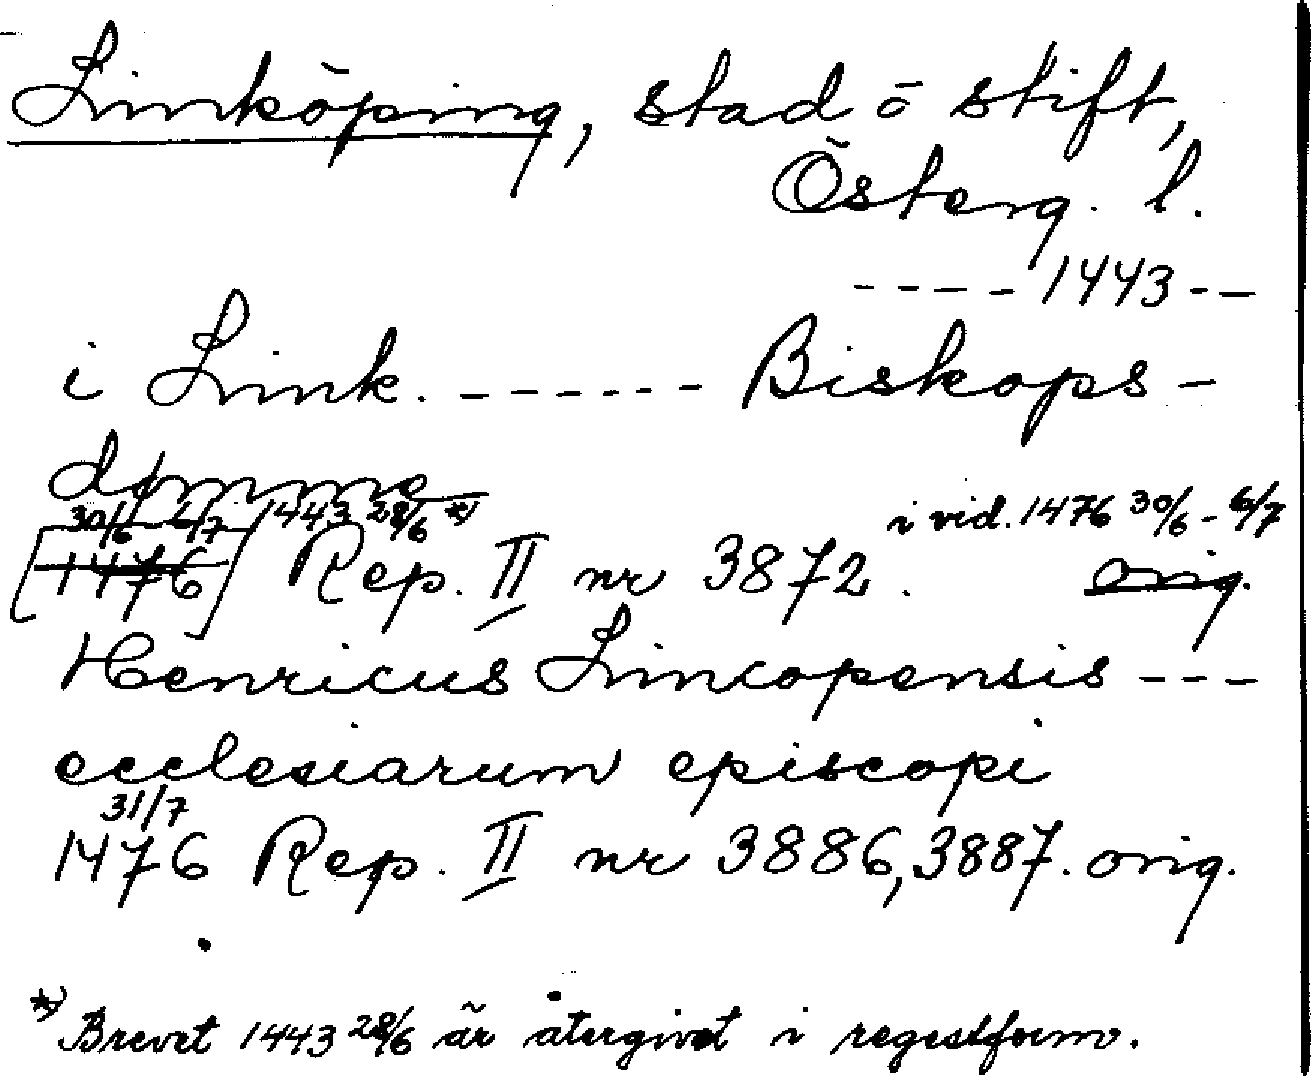 Linköping, stad ō stift,
Österg. l.
---- 1443 --
i Link. ------ Biskops-
30/6 6/7 1443 28/6 *)
i vid. 1476 30/6 - 6/7
[1476] Rep. II nr 3872. orig.
Henricus Lincopensis ---
ecclesiarum episcopi
31/7
1476 Rep. II nr 3886, 3887. orig.
*) Brevet 1443 28/6 är återgivet i regestform.